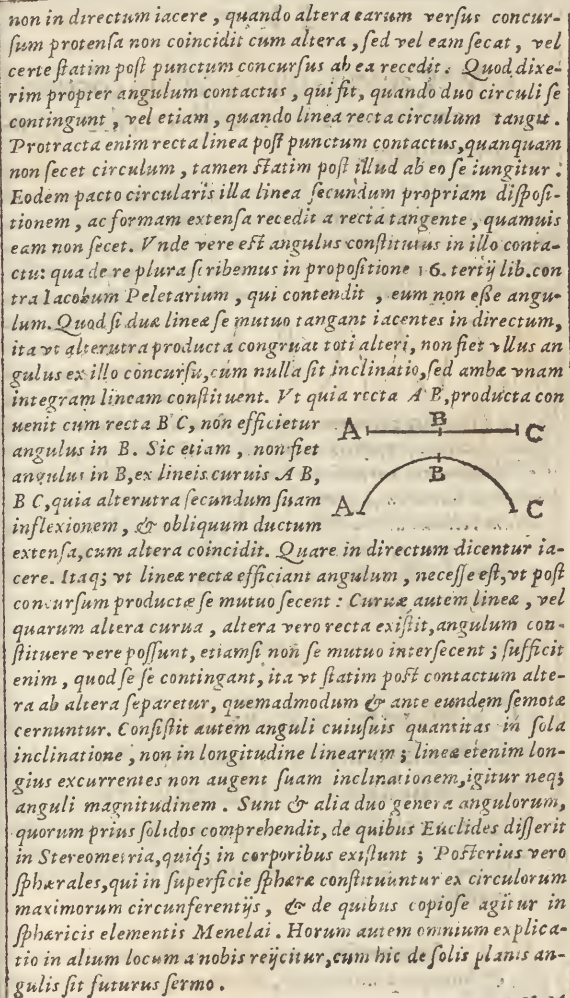 non in directum iacere, quando altera earum verſus concur-
ſum protenſa non coincidit cum altera, ſed vel eam ſecat, vel
certe ſtatim poſt punctum concurſus ab ea recedit. Quod dixe-
rim propter angulum contactus, qui fit, quando duo circuli ſe
contingunt, vel etiam, quando linea recta circulum tangit.
Protracta enim recta linea poſt punctum contactus, quanquam
non ſecet circulum, tamen ſtatim poſt illud ab eo ſe iungitur:
Eodem pacto circularis illa linea ſecundum propriam diſpoſi-
tionem, ac formam extenſa recedit a recta tangente, quamuis
eam non ſecet. Vnde vere eſt angulus conſtitutus in illo conta-
ctu: qua de re plura ſcribemus in propoſitione 16. tertij lib. con
tra Iacobum Peletarium, qui contendit, eum non eſſe angu-
lum. Quod ſi duæ lineæ ſe mutuo tangant iacentes in directum,
ita vt alterutra producta congruat toti alteri, non fiet vllus an
gulus ex illo concurſu, cum nulla ſit inclinatio, ſed ambæ vnam
integram lineam conſtituent. Vt quia recta A B, producta con
uenit cum recta B C, non efficietur
angulus in B. Sic etiam, non fiet
angulus in B, ex lineis curuis A B,
B C, quia alterutra ſecundum ſuam
inflexionem, & obliquum ductum
A B C
A B C
extenſa, cum altera coincidit. Quare in directum dicentur ia-
cere. Itaq; vt lineæ rectæ efficiant angulum, neceſſe eſt, vt poſt
concurſum productæ ſe mutuo ſecent: Curuæ autem lineæ, vel
quarum altera curua, altera vero recta exiſtit, angulum con-
ſtituere vere poſſunt, etiamſi non ſe mutuo interſecent; ſufficit
enim, quod ſe ſe contingant, ita vt ſtatim poſt contactum alte-
ra ab altera ſeparetur, quemadmodum & ante eundem ſemotæ
cernuntur. Conſiſtit autem anguli cuiuſuis quantitas in ſola
inclinatione, non in longitudine linearum; lineæ etenim lon-
gius excurrentes non augent ſuam inclinationem, igitur neq;
anguli magnitudinem. Sunt & alia duo genera angulorum,
quorum prius ſolidos comprehendit, de quibus Euclides diſſerit
in Stereometria, quiq; in corporibus exiſtunt; Poſterius vero
ſphærales, qui in ſuperficie ſphæræ conſtituuntur ex circulorum
maximorum circunferentijs, & de quibus copioſe agitur in
ſphæricis elementis Menelai. Horum autem omnium explica-
tio in alium locum a nobis reijcitur, cum hic de ſolis planis an-
gulis ſit futurus ſermo.